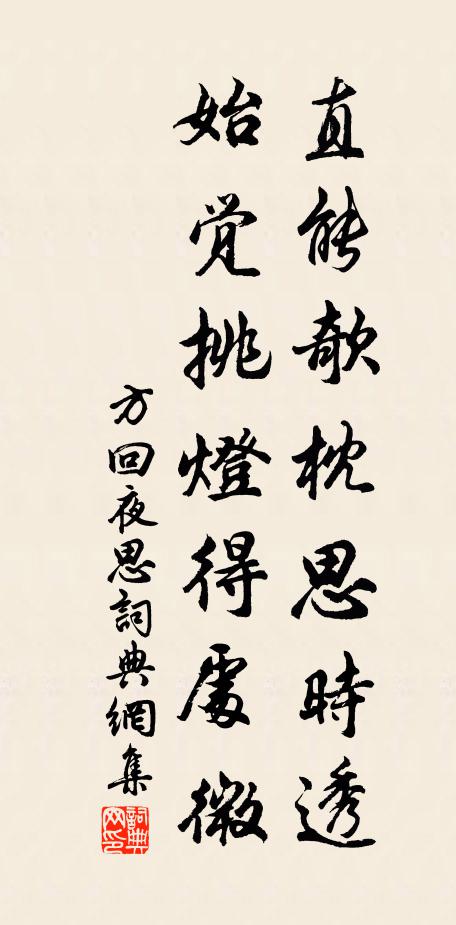 直能欹枕思時透
始觉挑燈得處微
方回夜思詞典網集
詞典網印